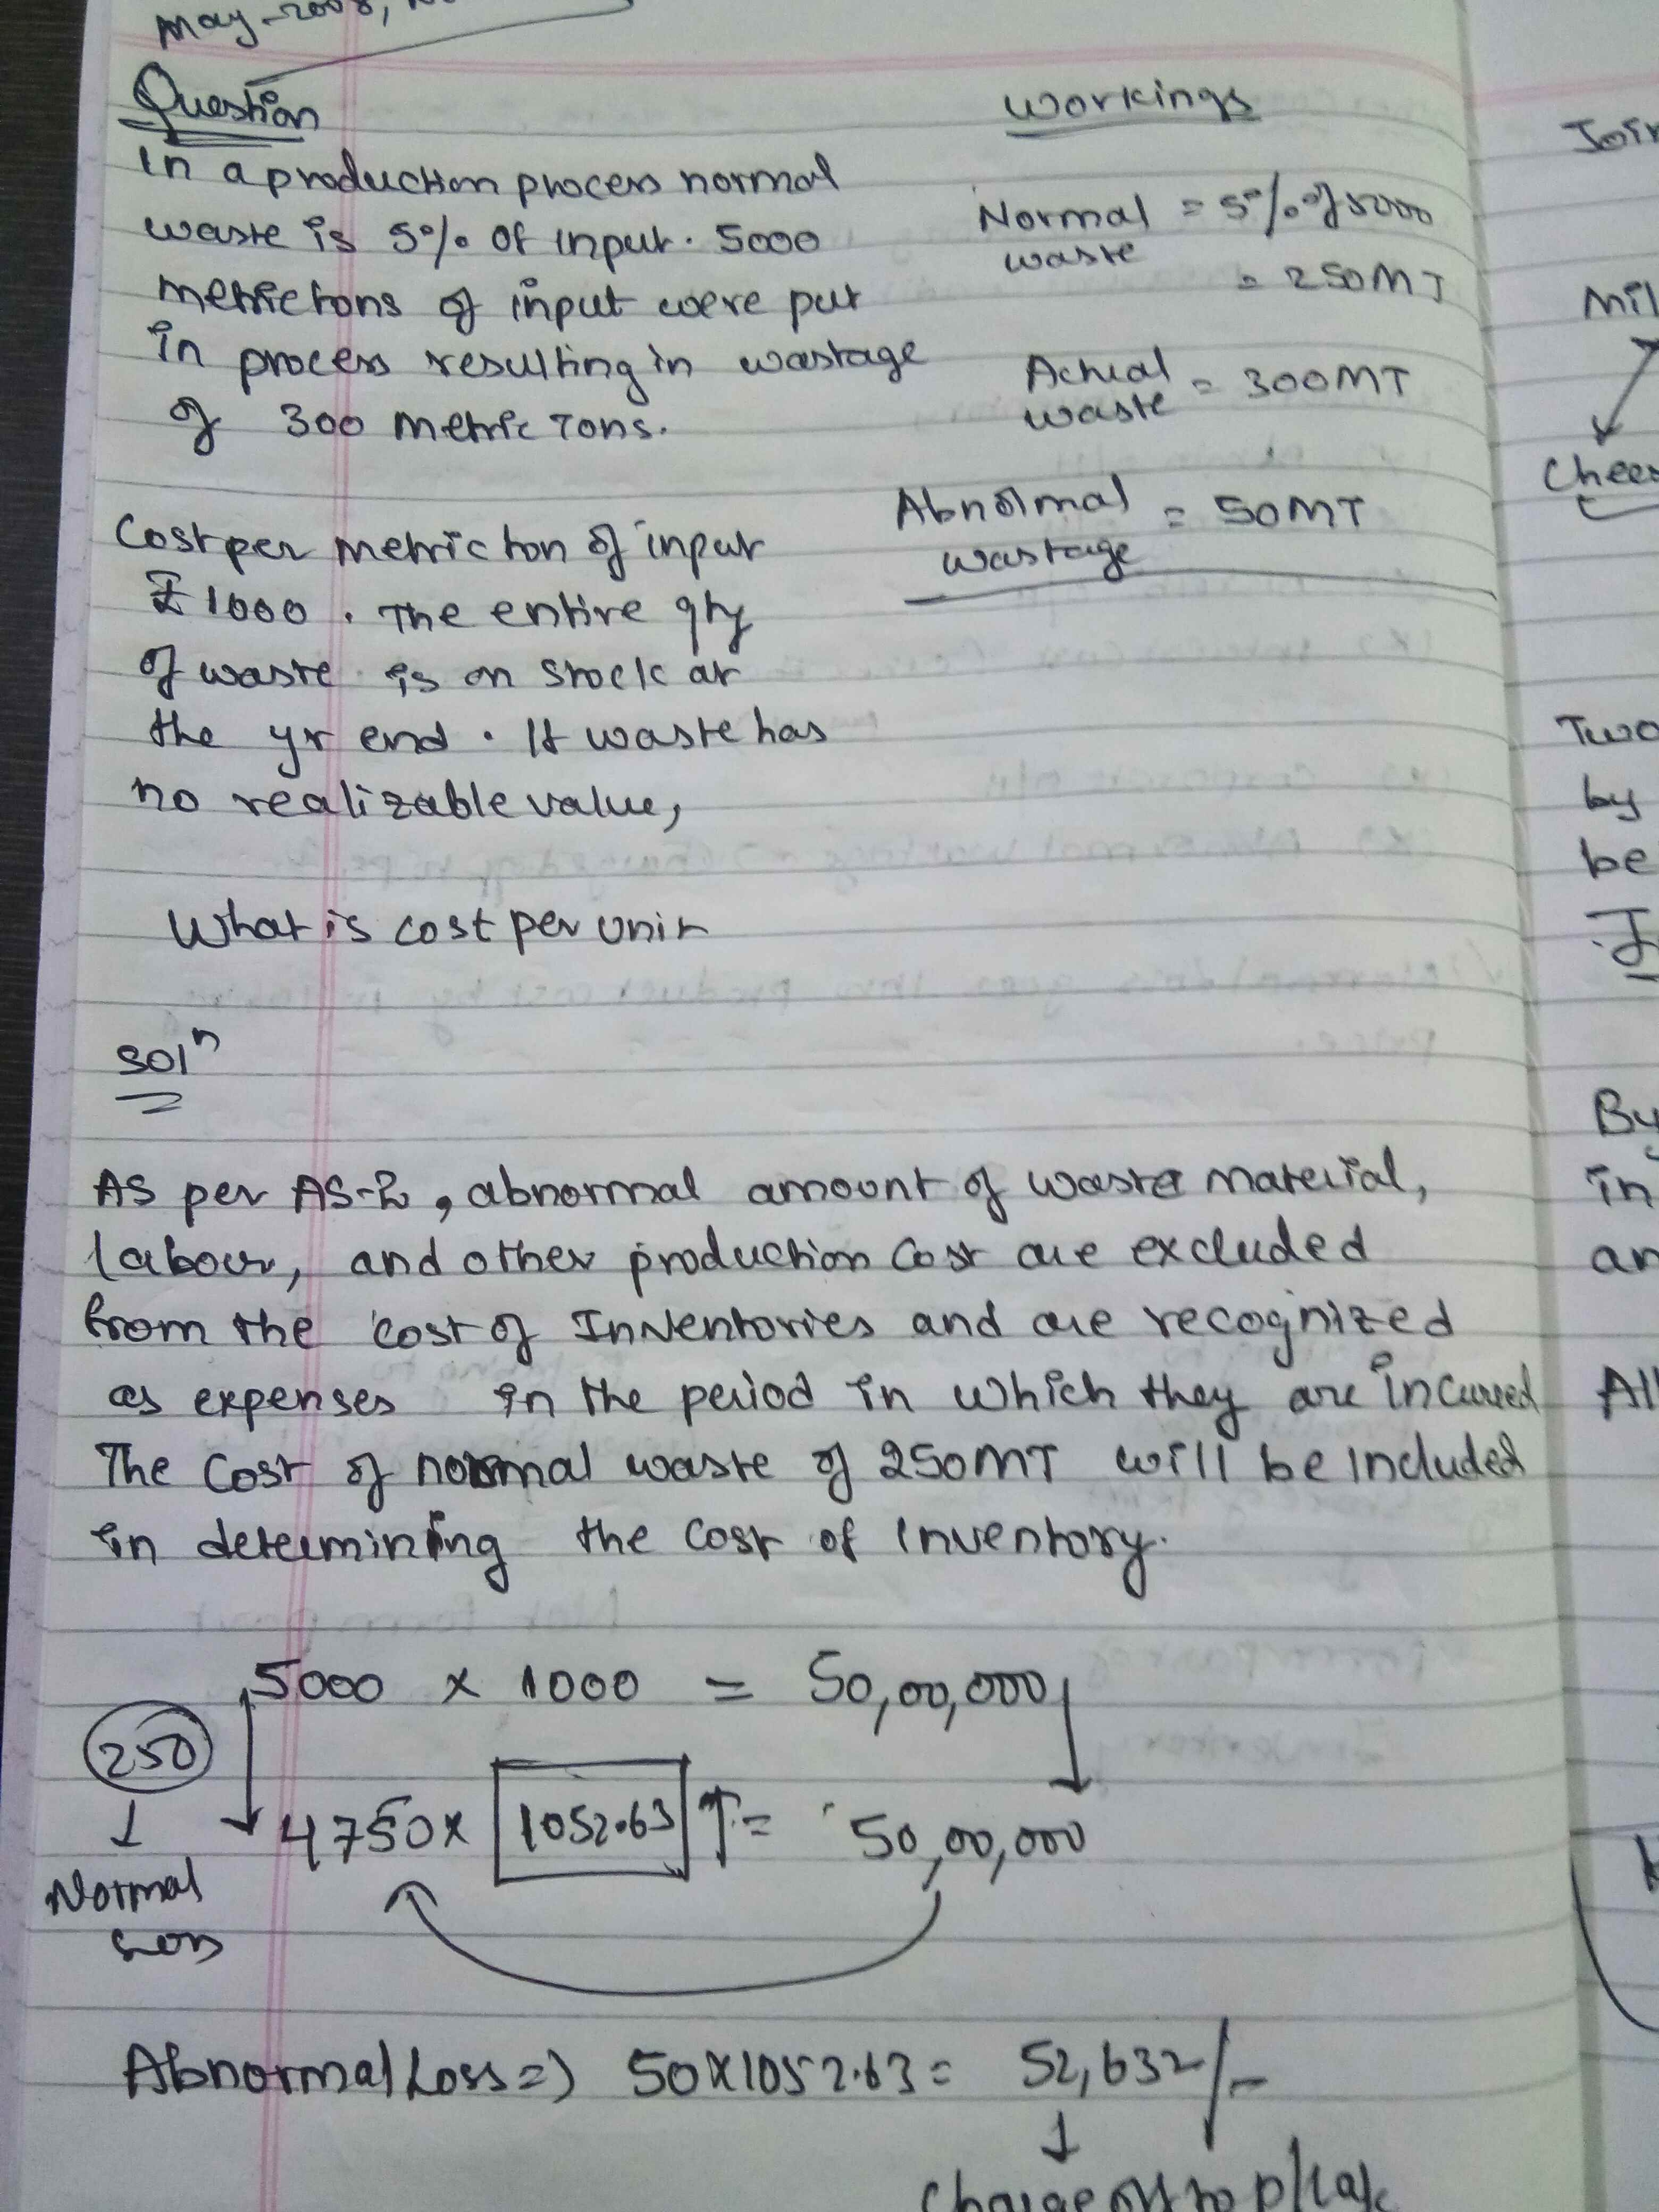 May-2008,
Question
In a production process normal
waste is 5% of input. 5000
metric tons of input were put
in process resulting in wastage
of 300 metric Tons.
Cost per metric ton of input
₹ 1000. The entire qty
of waste is on stock at
the yr end. If waste has
no realizable value,
What is cost per unit
workings
Normal waste = 5% of 5000
= 250MT
Actual waste = 300MT
Abnormal wastage = 50MT
Soln
As per AS-2, abnormal amount of waste material,
labour, and other production cost are excluded
from the cost of Inventories and are recognized
as expenses in the period in which they are incurred
The cost of normal waste of 250MT will be included
in determining the cost of Inventory.
5000 x 1000 = 50,00,000
250
Normal
Loss
4750x 1052.63 ↑= 50,00,000
Abnormal Loss => 50X1052.63= 52,632/-
Charge off to P/L a/c
Join
Mil
Chees
Two
by
be
By
in
an
All